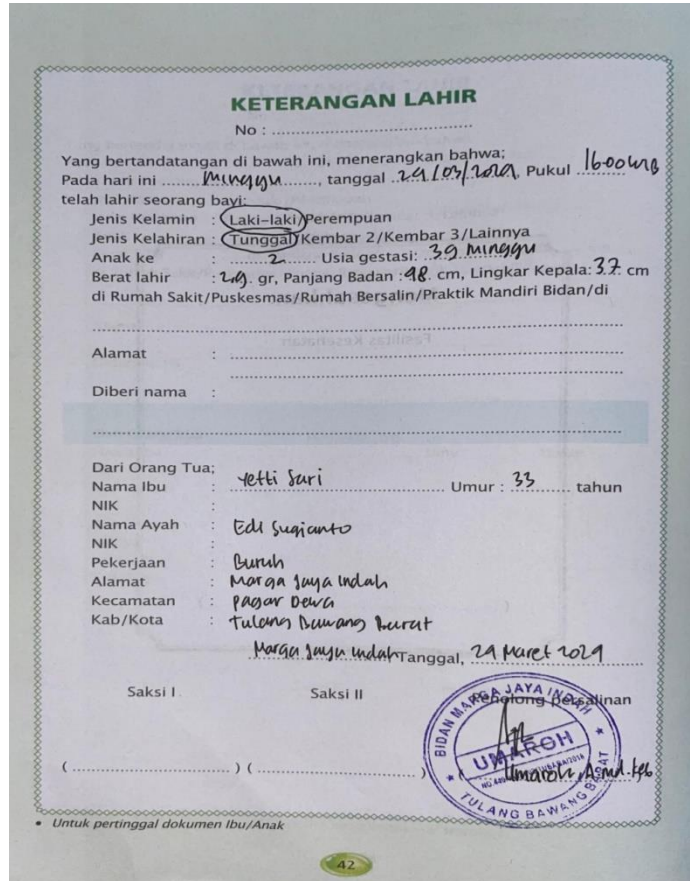 KETERANGAN LAHIR
No : ........................................
Yang bertandatangan di bawah ini, menerangkan bahwa;
Pada hari ini ........Minggu........, tanggal ..24/03/2024, Pukul 16.00 WIB
telah lahir seorang bayi:
Jenis Kelamin : Laki-laki/Perempuan
Jenis Kelahiran : Tunggal/Kembar 2/Kembar 3/Lainnya
Anak ke : ........2...... Usia gestasi: ..39 Minggu
Berat lahir : 2.9. gr, Panjang Badan : 48. cm, Lingkar Kepala: 37 cm
di Rumah Sakit/Puskesmas/Rumah Bersalin/Praktik Mandiri Bidan/di
Alamat :
Diberi nama :
Dari Orang Tua;
Nama Ibu : Yetti Sari Umur : 33 tahun
NIK :
Nama Ayah : Edi Sugianto
NIK :
Pekerjaan : Buruh
Alamat : Marga Jaya Indah
Kecamatan : Pagar Dewa
Kab/Kota : Tulang Bawang Barat
Marga Jaya Indah Tanggal, 24 Maret 2024
Saksi I Saksi II Penolong persalinan
BIDAN MARGA JAYA INDAH
UMAROH
TULANG BAWANG BARAT
( ........................ ) ( ........................ ) ( Umaroh, Amd.keb
• Untuk pertinggal dokumen Ibu/Anak
42